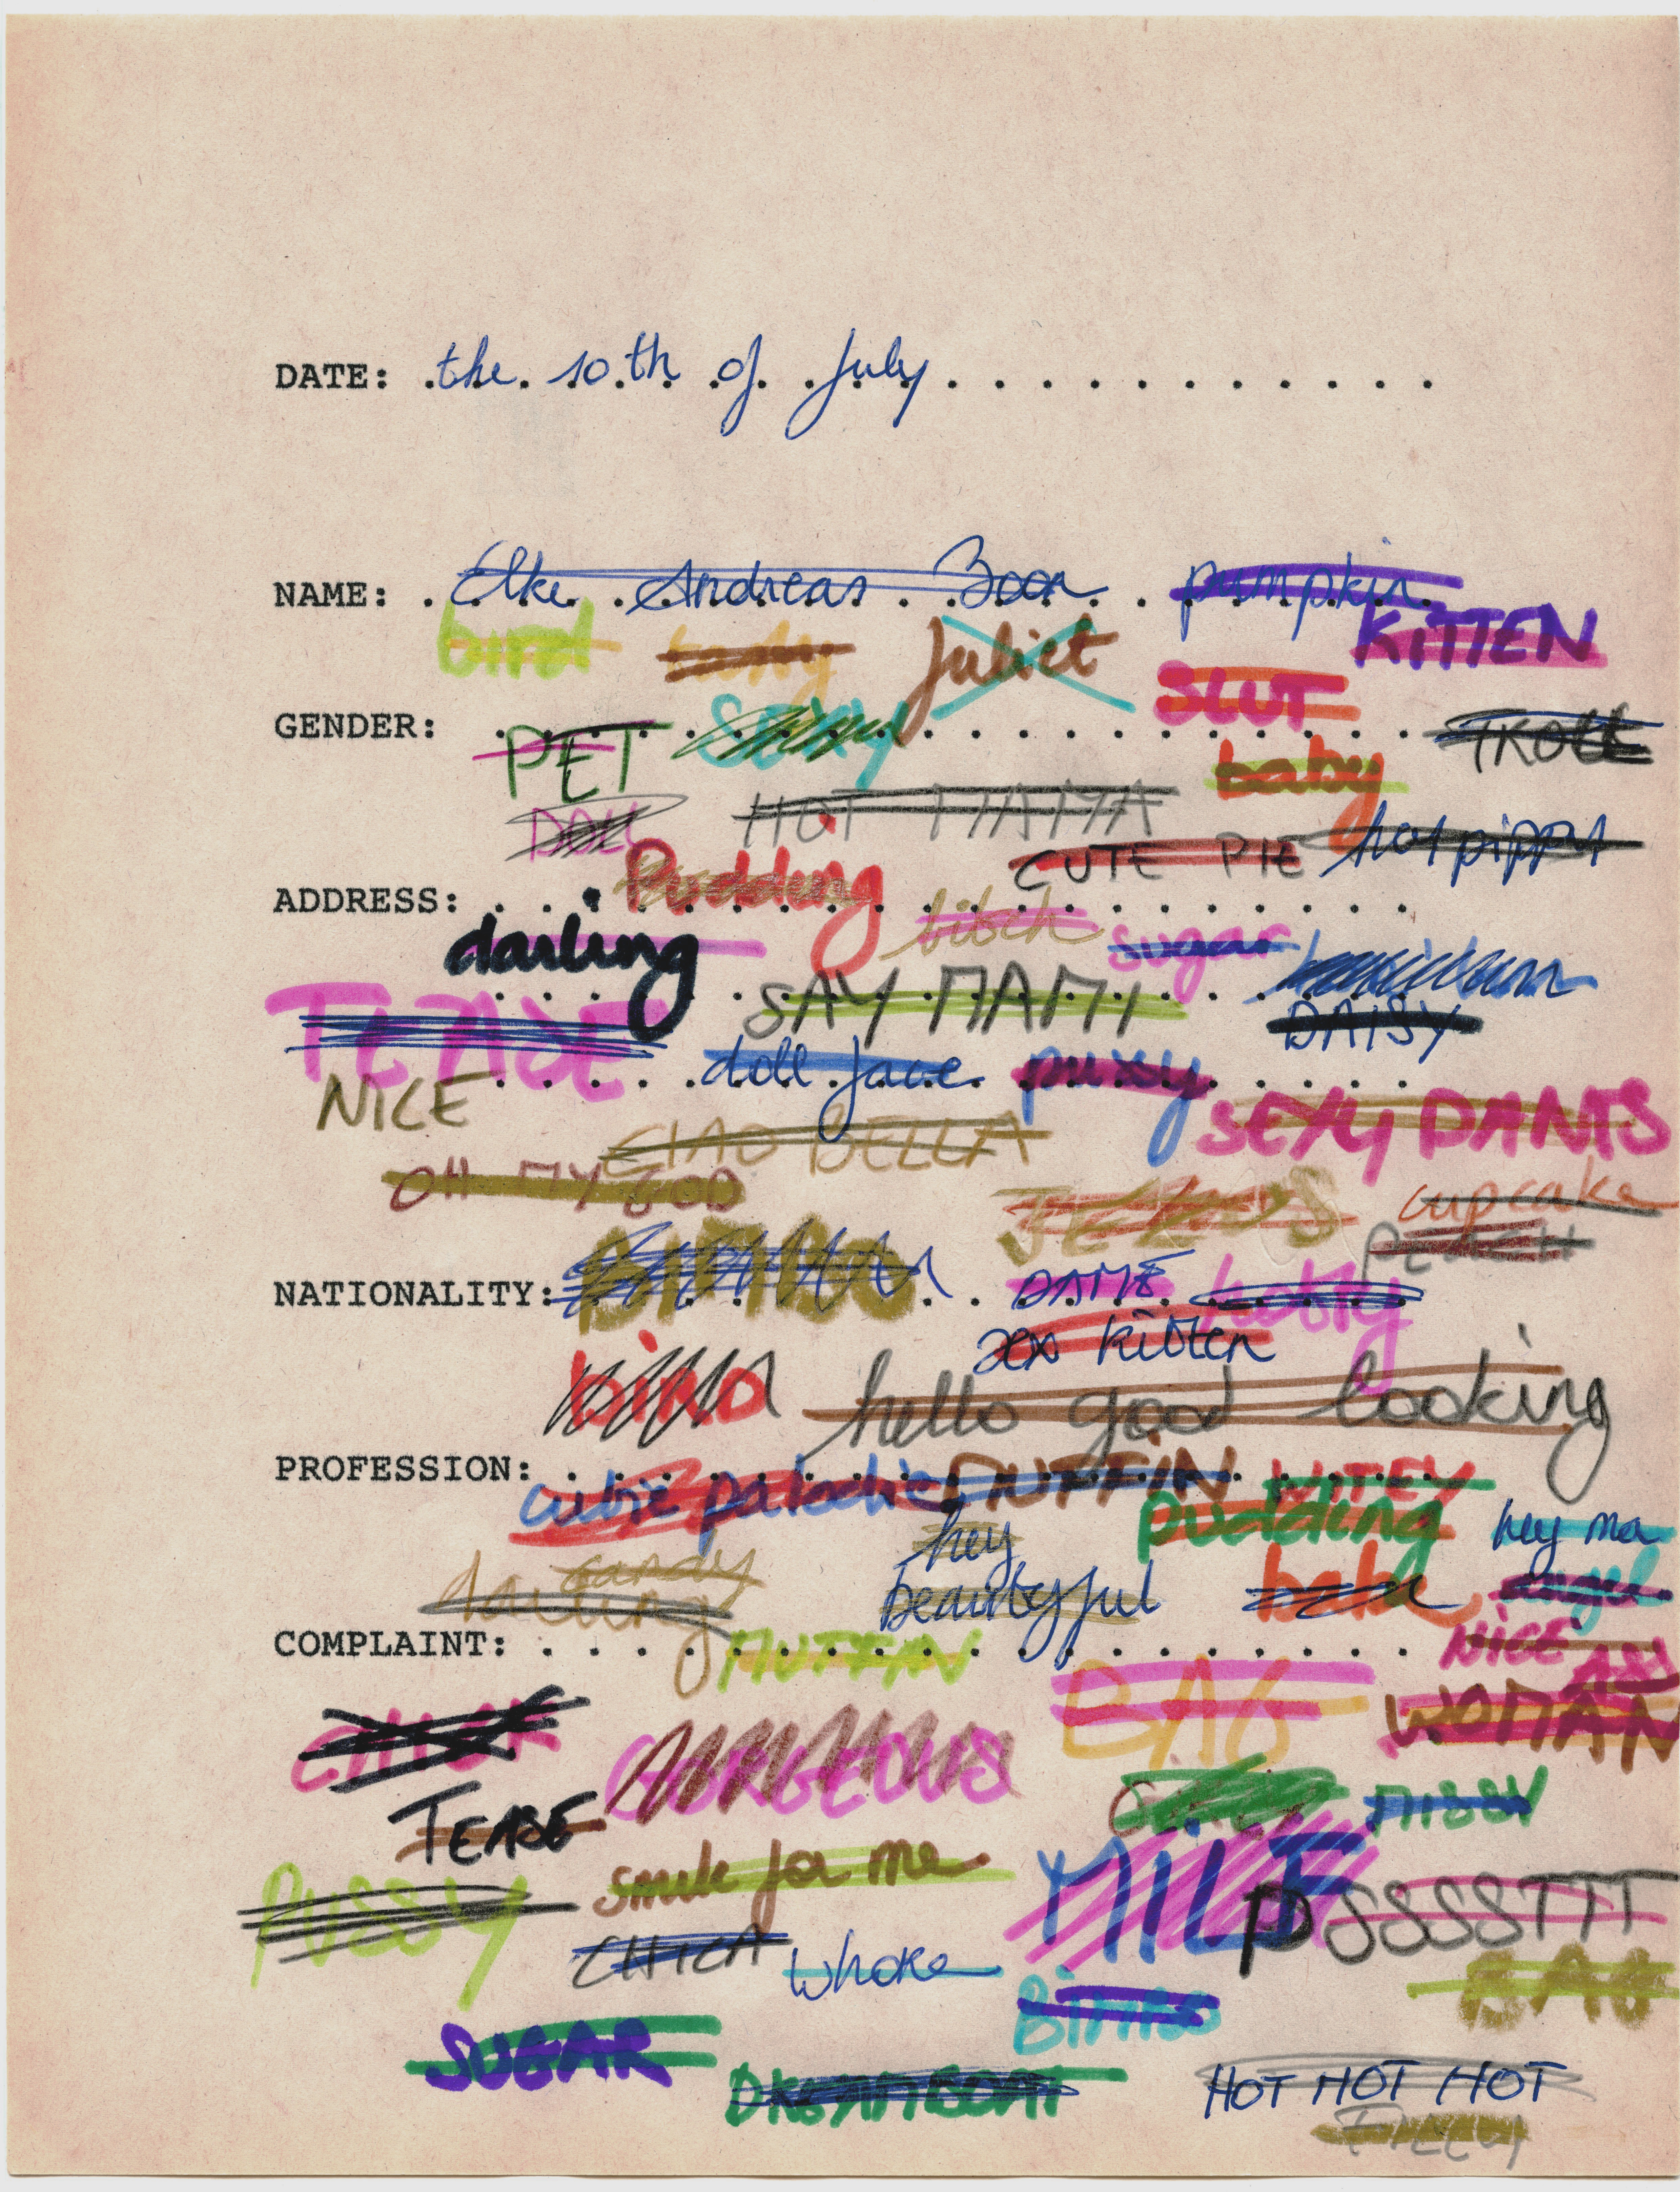 DATE: the 10th of July
NAME: Elke Andreas Boon pumpkin
KITTEN
bird Juliet
SLUT
GENDER:
PET SEXY TROLL
baby
DOLL HOT MAMA
CUTE PIE
ADDRESS: Pudding
darling bitch sugar
TEASE SAY MAMI
DAISY
doll face
NICE SEXY PANTS
CIAO BELLA
OH MY GOD cupcake
NATIONALITY: BIMBO DAME
sex kitten
hello good looking
PROFESSION: MUFFIN
pudding hey ma
hey
candy
darling beautyful babe angel
COMPLAINT: MUFFIN NICE ASS
BAG WOMAN
GORGEOUS
TEASE MISSY
PUSSY smile for me MILF PSSSSTTT
CHICA whore BAG
BIMBO
SUGAR
DREAMBOAT HOT HOT HOT
FILLY